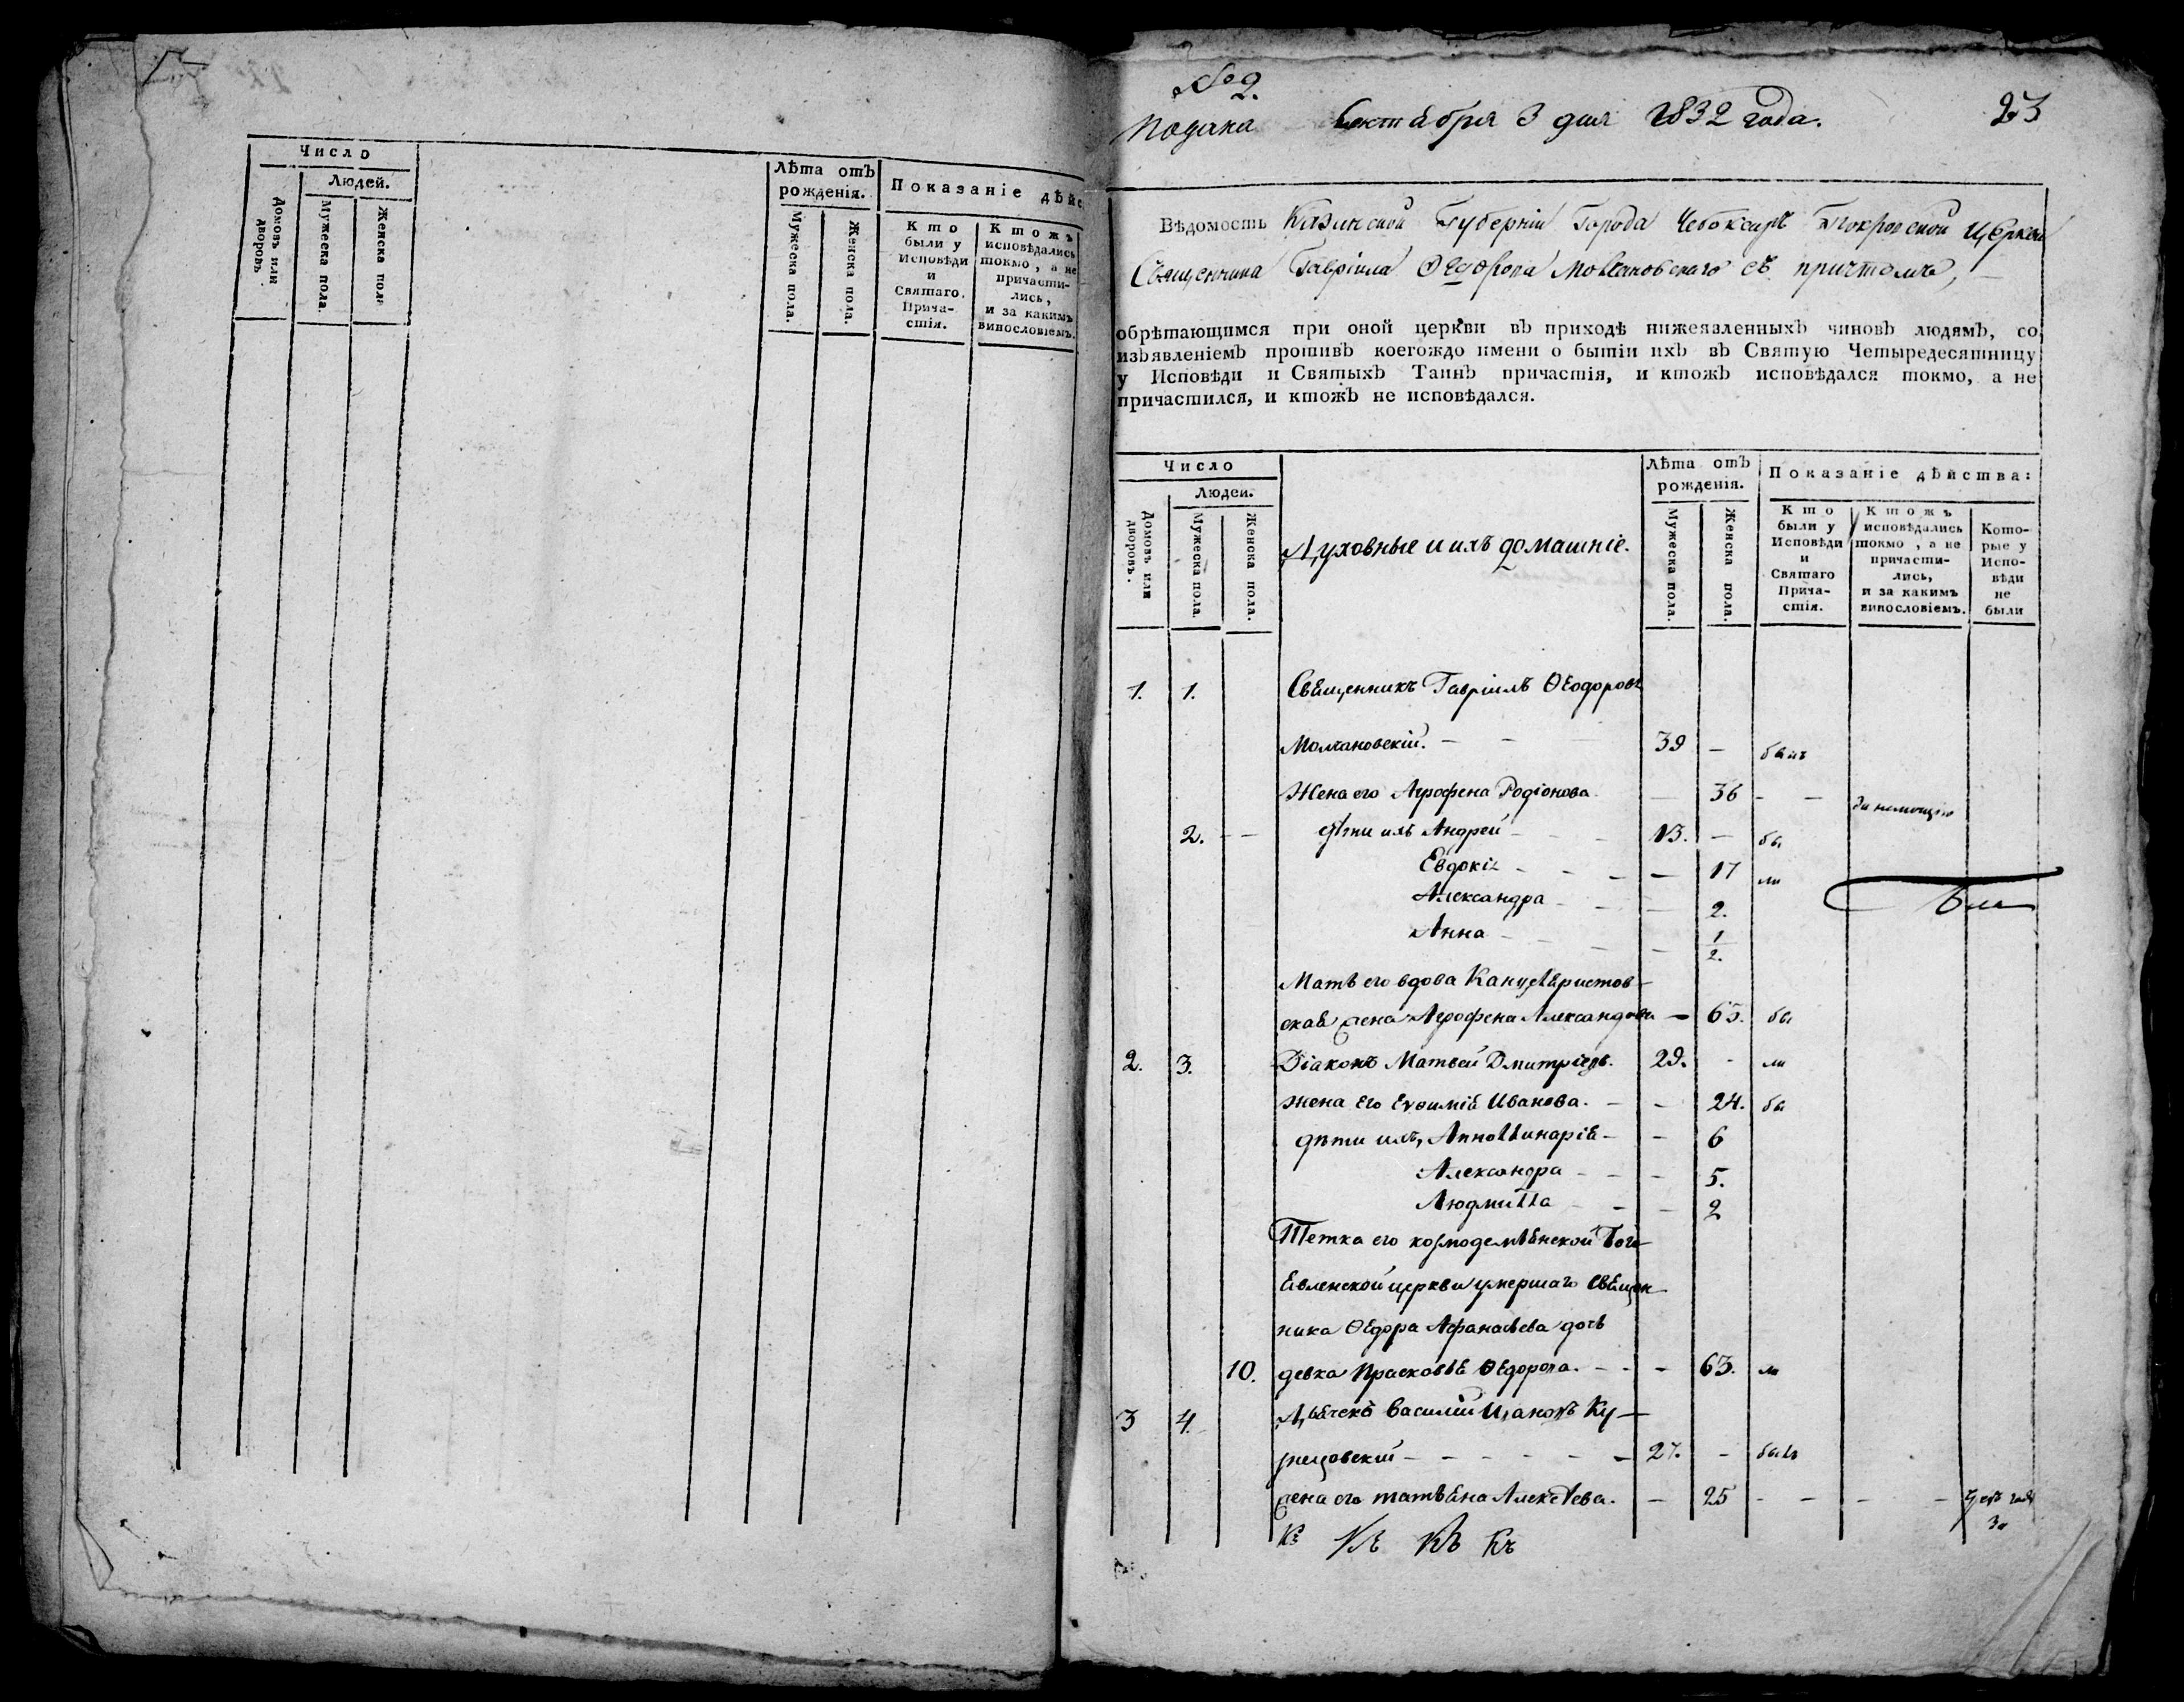 Число
Людей.
Домовъ или дворовъ
Мужеска пола
Женска пола
Лѣта отъ рожденія.
Мужеска пола.
Женска пола.
Показаніе дѣйс
Кто были у Исповѣди и Святаго Причастія.
Ктожъ исповѣдались токмо, а не причастились, и за какимъ винословіемъ.
№ 2.
Подана Октября 3 дня 1832 года.
23
Вѣдомость Казанской Губерніи Города Чебоксаръ Покровской Церкви
Священника Гавріила Ѳеодорова Молчановскаго съ причтомъ,
обрѣтающимся при оной церкви въ приходѣ нижеявленныхъ чиновъ людямъ, со
изъявленіемъ противъ коегождо имени о бытіи ихъ въ Святую Четыредесятницу
у Исповѣди и Святыхъ Таинъ причастія, и ктожъ исповѣдался токмо, а не
причастился, и ктожъ не исповѣдался.
Число
Людей.
Домовъ или дворовъ.
Мужеска пола.
Женска пола.
Духовные и ихъ домашніе.
Лѣта отъ рожденія.
Мужеска пола.
Женска пола.
Показаніе дѣйства:
Кто были у Исповѣди и Святаго Причастія.
Ктожъ исповѣдались токмо, а не причастились, и за какимъ винословіемъ.
Которые у Исповѣди не были
1. 1. Священникъ Гавріилъ Ѳеодоровъ
Молчановскій. — — 39 — былъ
Жена его Агрофена Родіонова — 36 — —
2. — — дѣти ихъ Андрей — 13. — бы
Евдокія — — — — 17 ли
Александра — — — 2.
Анна — — — — 1/2.
Мать его вдова Канцеляристов-
ская жена Агрофена Александрова — 65. бы
2. 3. Діаконъ Матвей Дмитріевъ. 29. - ли
жена его Евѳимія Иванова. — - 24. бы
дѣти ихъ, Апполинарія — - 6
Александра — — - 5.
Людмила — — — 2
Тетка его козмодемьянской Бого-
явленской церкви умершаго священ-
ника Ѳедора Афанасьева дочь
10. девка Прасковья Ѳедорова. - - - 63. ли
3 4. Дьячекъ Василий Ивановъ Ку-
рецовский — — — — — 27. - былъ
жена его татьяна Алексѣева. — 25 - - — —